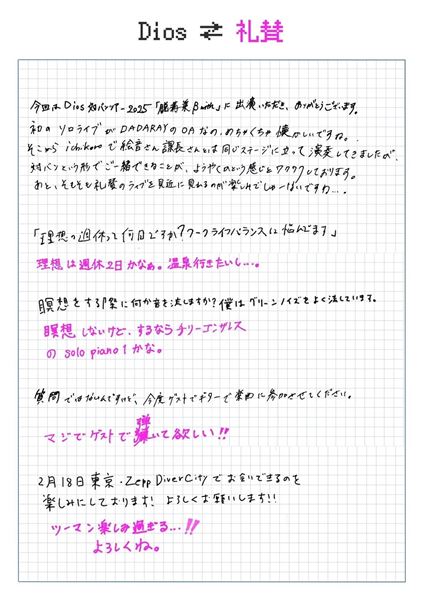 Dios ⇄ 礼賛
今回は Dios 対バンツアー2025「脱毒巣β with」に出演いただき、ありがとうございます。
初のソロライブがDADARAYのOAなの、めちゃくちゃ懐かしいですね。
そこから ichikoroで絵音さん課長さんとは同じステージに立って演奏してきましたが、
対バンという形でご一緒できることが、ようやくかという感じとワクワクしております。
あと、そもそも礼賛のライブを見近に見れるのが楽しみでしゃーないですわ...
「理想の週休って何日ですか?ワークライフバランスに悩んでます」
理想は週休2日かなぁ。温泉行きたいし...。
瞑想をする際に何か音を流しますか?僕はグリーンノイズをよく流しています。
瞑想しないけど、するならチリーゴンザレス
の solo piano 1 かな。
質問ではないんですけど、今度ゲストでギターで楽曲に参加させてください。
マジでゲストで弾いて欲しい!!
2月18日東京・Zepp DiverCityでお会いできるのを
楽しみにしております! よろしくお願いします!!
ツーマン楽しみ過ぎる...!!
よろしくね。